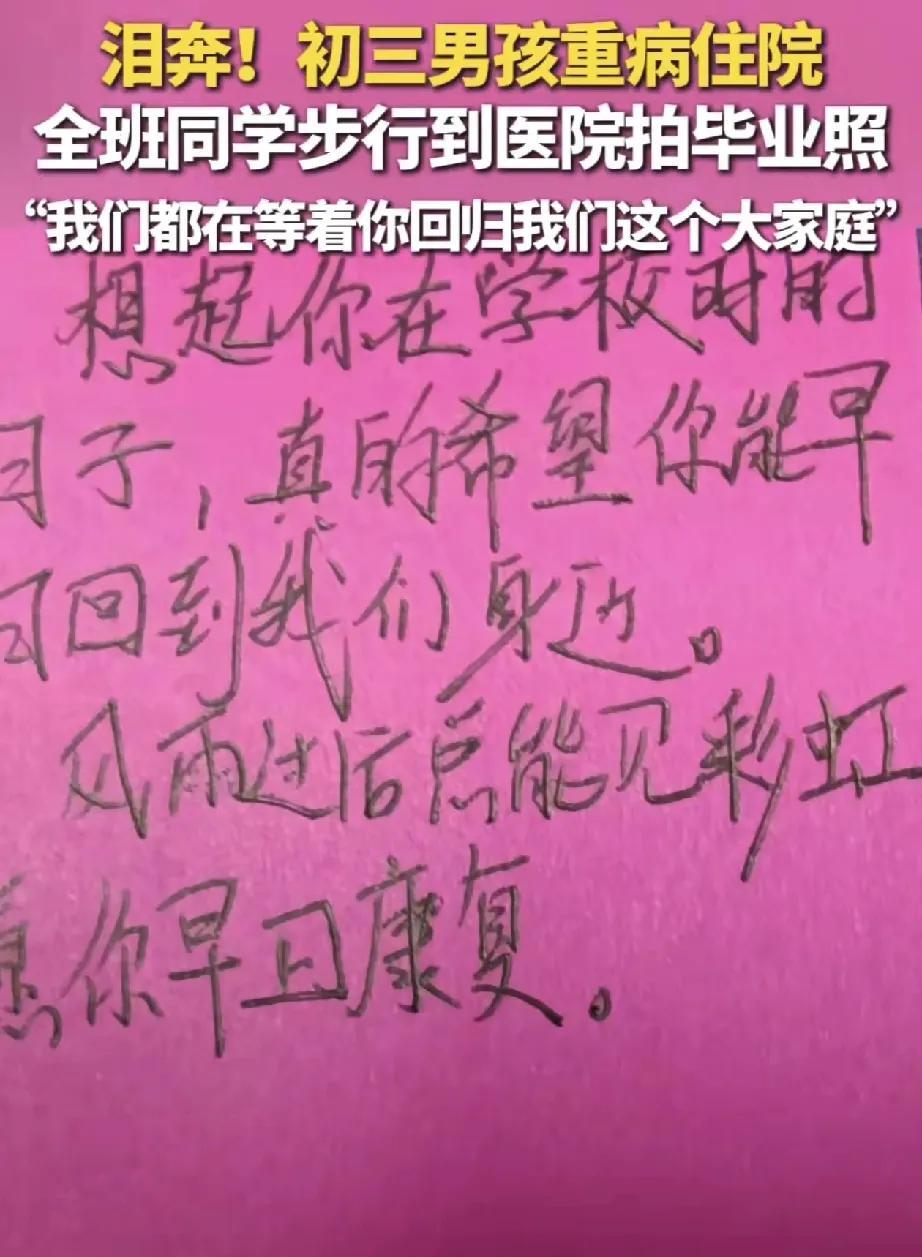 泪奔！初三男孩重病住院
全班同学步行到医院拍毕业照
“我们都在等着你回归我们这个大家庭”
想起你在学校时的
日子，真的希望你能早
日回到我们身边。
风雨过后总能见彩虹
愿你早日康复。